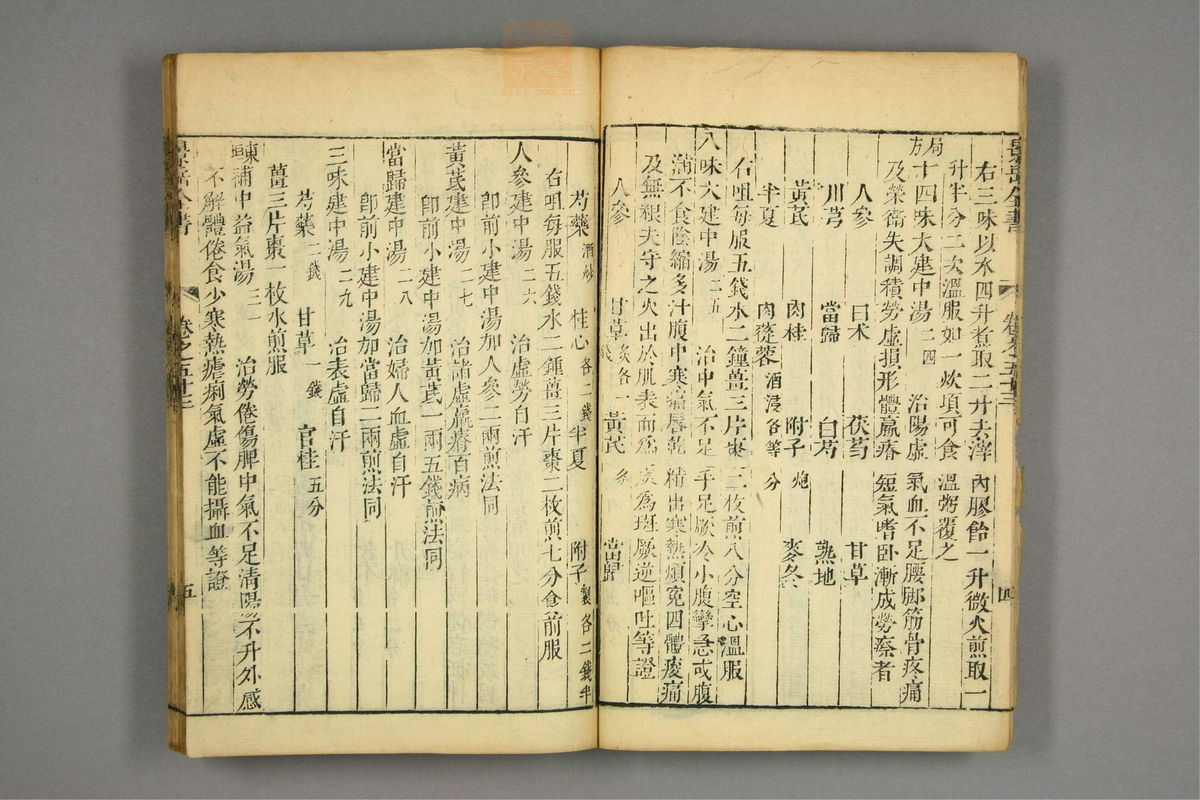 右三味以水四升煮取二升去滓內膠飴一升微火煎取一
升半分二次溫服如一炊頃可食溫粥覆之
局方十四味大建中湯二四 治陽虛氣血不足腰脚筋骨疼痛
及榮衛失調積勞虛損形體羸瘠短氣嗜卧漸成勞瘵者
人參 白术 茯苓 甘草
川芎 當歸 白芍 熟地
黃芪 肉桂 附子炮 麥冬
半夏 肉蓯蓉酒浸各等分
右㕮咀每服五錢水二鐘薑三片棗二枚煎八分空心溫服
八味大建中湯二五 治中氣不足手足厥冷小腹攣急或腹
滿不食陰縮多汁腹中寒痛唇乾精出寒熱煩冤四體痠痛
及無根失守之火出於肌表而為疾為斑厥逆嘔吐等證
人參 甘草炙各一 黃芪 當歸
芍藥酒炒 桂心各二錢 半夏 附子製各二錢半
右咀每服五錢水二鍾薑三片棗二枚煎七分食前服
人參建中湯二六 治虛勞自汗
即前小建中湯加人參二兩煎法同
黃芪建中湯二七 治諸虛羸瘠百病
即前小建中湯加黃芪一兩五錢煎法同
當歸建中湯二八 治婦人血虛自汗
即前小建中湯加當歸二兩煎法同
三味建中湯二九 治表虛自汗
芍藥二錢 甘草一錢 官桂五分
薑三片棗一枚水煎服
東垣補中益氣湯三十 治勞倦傷脾中氣不足清陽不升外感
不解體倦食少寒熱瘧痢氣虛不能攝血等證
景岳全書 卷之五十三 四
景岳全書 卷之五十三 五